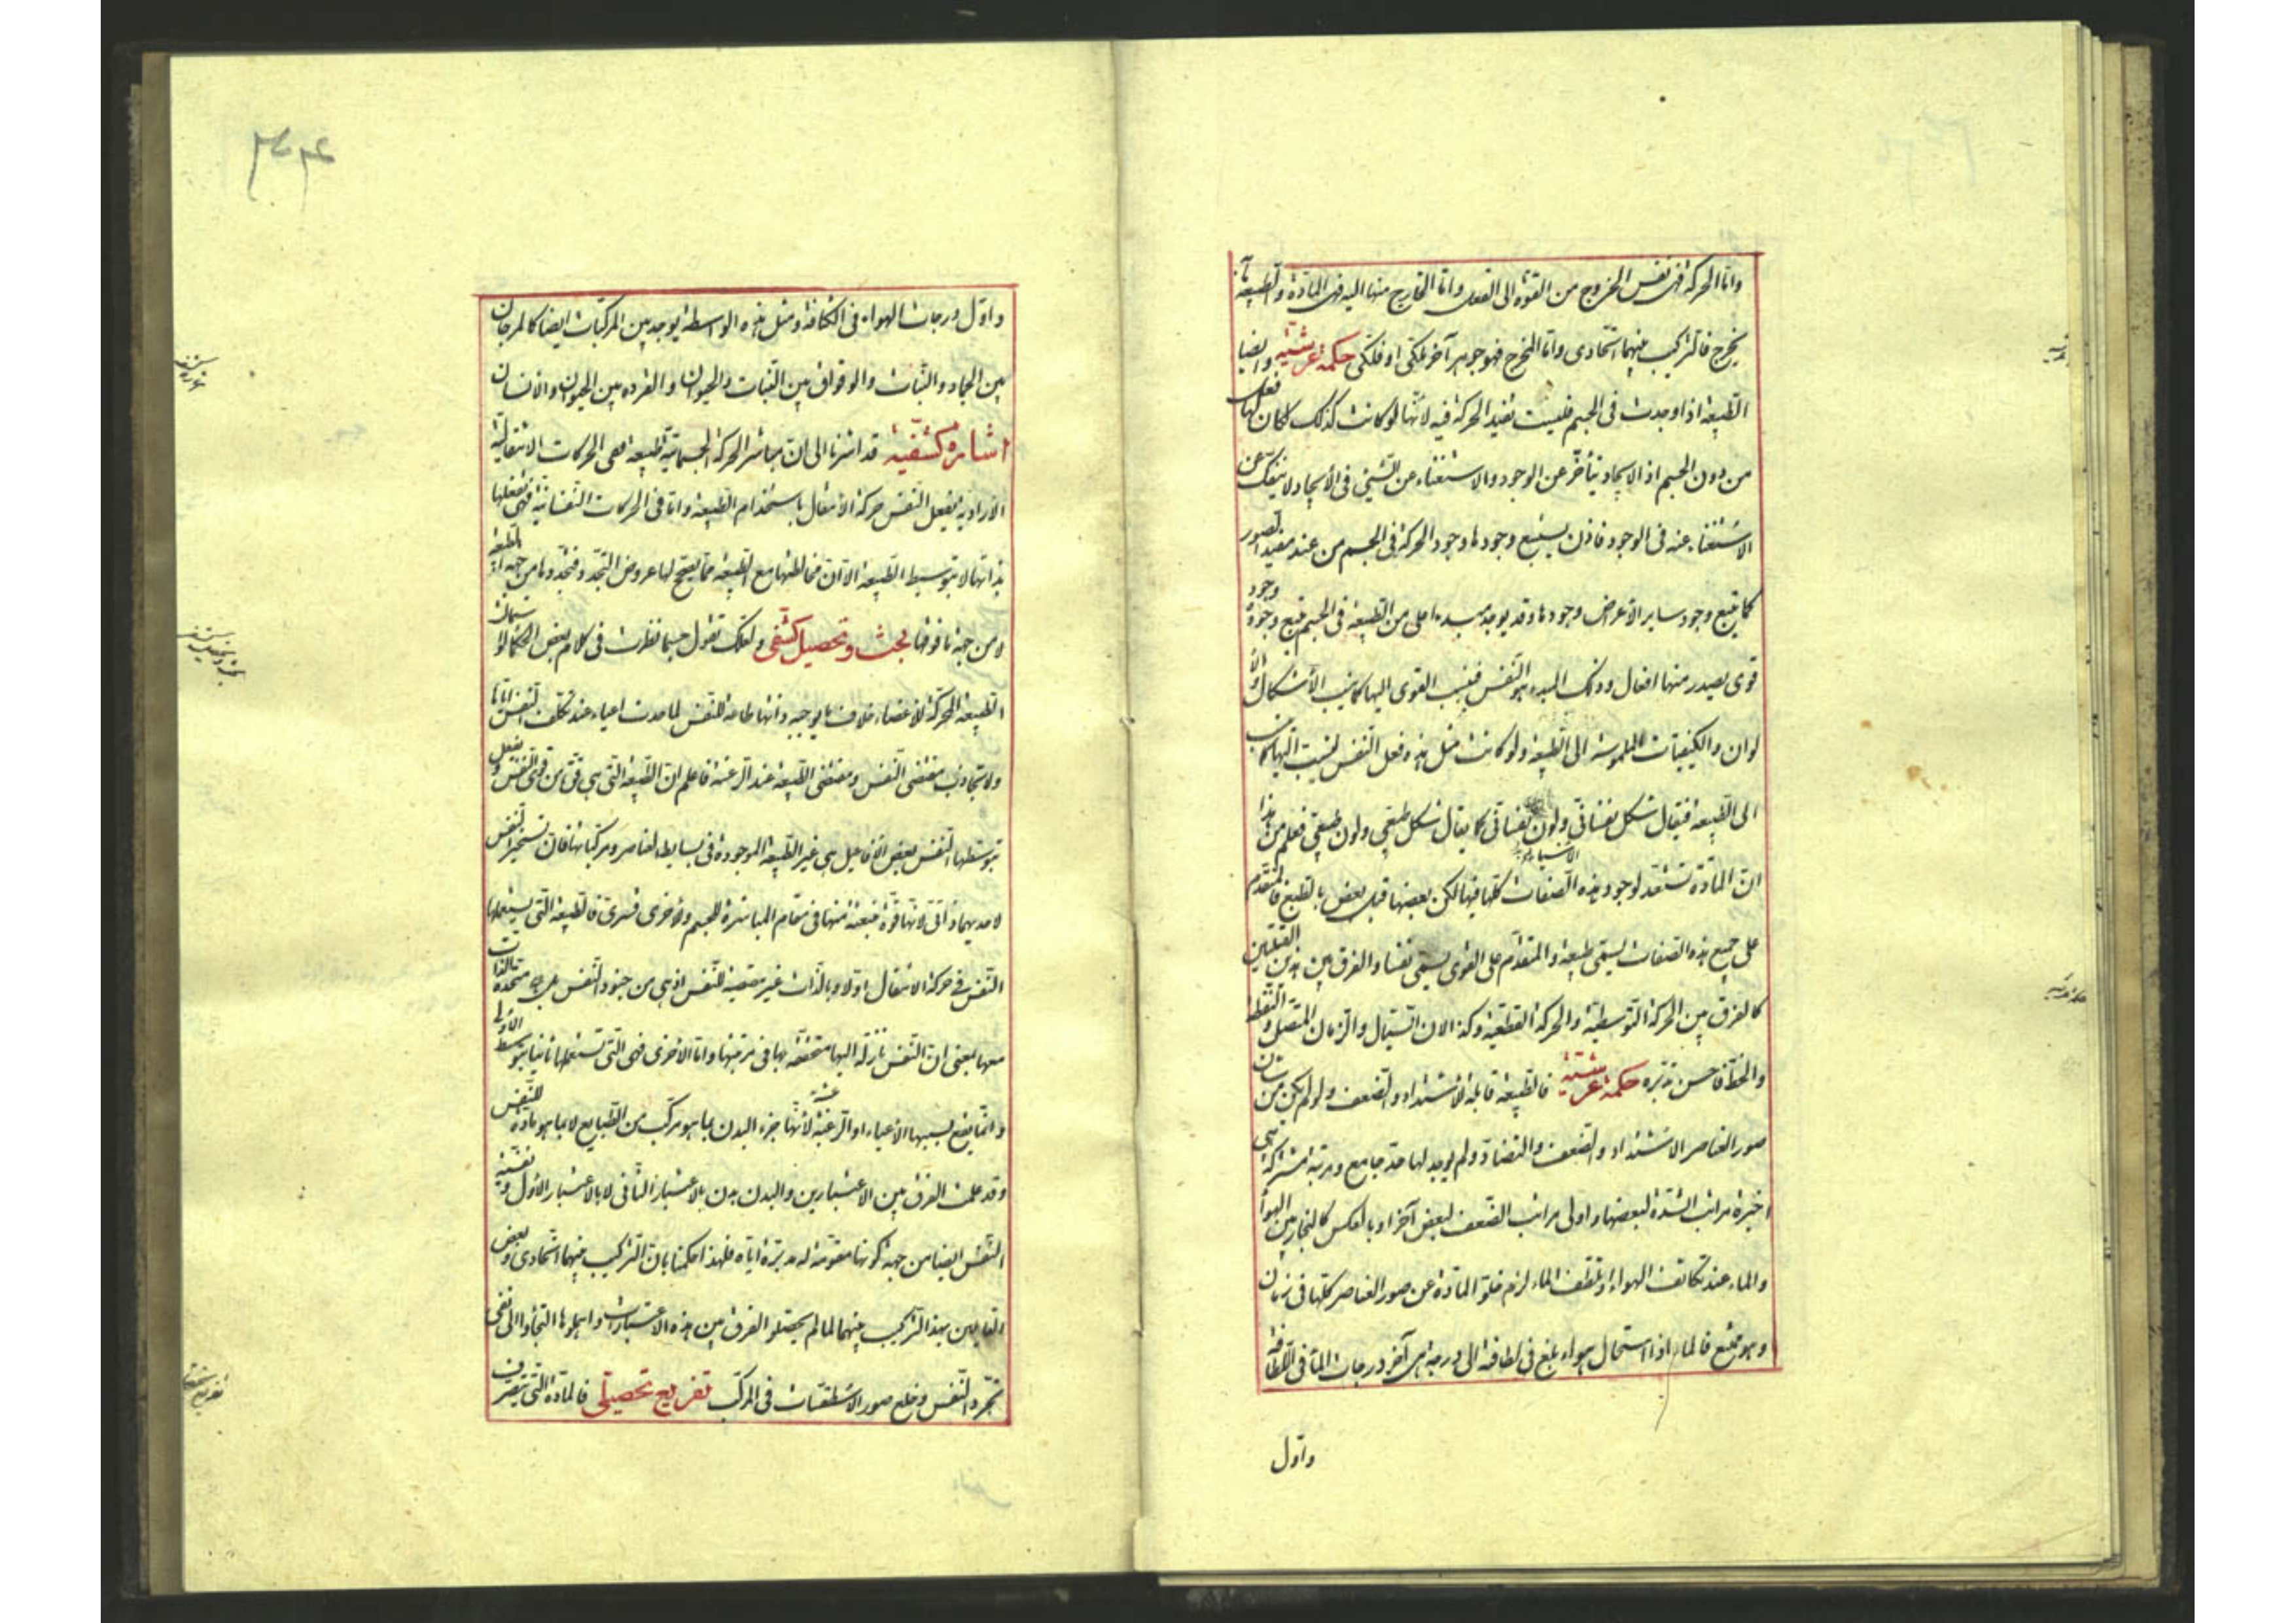 واما الحركة فهى نفس الخروج من القوة الى الفعل واما الخارج منها اليه فهى المادة والطبيعة بما
يخرج فالتركيب بينهما اتحادى واما المخرج فهو جوهر آخر ملكى او فلكى حكمة عرشية وايضا
الطبيعة اذا وجدت فى الجسم فليست تفيد الحركة فيه لانها لو كانت كذلك لكان لها فعل
من دون الجسم اذ الايجاد يتأخر عن الوجود والاستغناء عن الشىء فى الايجاد لا ينفك عن
الاستغناء عنه فى الوجود فاذن يستتبع وجودها وجود الحركة فى الجسم من عند مفيد الصور
كما يتبع وجود ساير الاعراض وجودها وقد يوجد مبدء اعلى من الطبيعة فى الجسم يتبع وجوده وجود
قوى يصدر منها افعال وذلك المبدء هو النفس فينسب القوى اليها كما ينسب الأشكال والأ
لوان والكيفيات الملموسة الى الطبيعة ولو كانت مثل هذه فعل النفس لنسبت اليها كما نسب
الى الطبيعة فيقال شكل نفسانى ولون نفسانى كما يقال شكل طبيعى ولون طبيعى فعلم من هذا
ان المادة تستعد لوجود هذه الصفات كلها فيها لكن بعضها قبل بعض بالطبع فالمتقدم
على جميع هذه الصفات يسمى طبيعة والمتقدم على القوى يسمى نفسا والفرق بين هذين القبلتين
كالفرق بين الحركة التوسطية والحركة القطعية وكذا الان السيال والزمان المتصل والنقطة
والخط فاحسن تدبره حكمة عرشية فالطبيعة قابلة للاشتداد والضعف ولو لم يكن من شان
صور العناصر الاشتداد والضعف والتضاد ولم يوجد لها حد جامع ومرتبة مشتركة هى
اخيرة مراتب الشدة لبعضها واولى مراتب الضعف لبعض آخر او بالعكس كالبخار بين الهواء
والماء عند تكاثف الهواء او تلطف الماء لزم خلو المادة عن صور العناصر كلها فى زمان
وهو ممتنع فالماء اذا استحال هواء بلغ فى لطافته الى درجة هى آخر درجات الماء فى اللطافة
واول
واول درجات الهواء فى الكثافة ومثل هذه الواسطة يوجد بين المركبات ايضا كالمرجان
بين الجماد والنبات والوقواق بين النبات والحيوان والقرده بين الحيوان والانسان
اشارة كشفية قد اشرنا الى ان مباشر الحركة الجسمانية طبيعة ففى الحركات الانتقالية
الارادية يفعل النفس حركة الانتقال باستخدام الطبيعة واما فى الحركات النفسانية فهى تفعلها
بذاتها لا بتوسيط الطبيعة الا ان مخالطتها مع الطبيعة مما يصحح لها عروض التجدد فتجددها من جهة الطبيعة
لا من جهة ما فوقها بحث وتحصيل كشفى ولعلك تقول حسبما نظرت فى كلام بعض الحكماء
الطبيعة المحركة للاعضاء خلاف ما يوجبه ذاتها طاعة للنفس لما حدث اعياء عند تكلف النفس اياها
ولا تجاذب مقتضى النفس ومقتضى الطبيعة عند الرعشة فاعلم ان الطبيعة التى هى قوة من قوى النفس وتفعل
بتوسطها النفس بعض الافاعيل هى غير الطبيعة الموجودة فى بسايط العناصر ومركباتها فان تسخير النفس
لاحديهما ذاتى لانها قوة منبعثة منها فى مقام المباشرة للجسم وللاخرى قسرى فالطبيعة التى يستعملها
النفس فى حركة الانتقال اولا وبالذات غير متعصية للنفس اذ هى من جنود النفس بل هى متحدة الذات
معها بمعنى ان النفس نازلة اليها متحققة بها فى مرتبتها واما الاخرى فهى التى تستعملها ثانيا بتوسط الاولى
وانما يقع بسببها الاعياء او الرعشة لانها جزء البدن بما هو مركب من الطبايع لا بما هو مادة للنفس
وقد علمت الفرق بين الاعتبارين والبدن بدن بالاعتبار الثانى لا بالاعتبار الاول ونفسية
النفس ايضا من جهة كونها مقومة له مدبرة اياه فلهذا حكمنا بان التركيب بينهما اتحادى وبعض
القايلين بهذا التركيب بينهما لما لم يحصلوا الفرق بين هذه الاعتبارات واهملوها التجأوا الى نفى
تجرد النفس وخلع صور الاسطقسات فى المركب تفريع تحصيلى فالمادة التى يتصرف